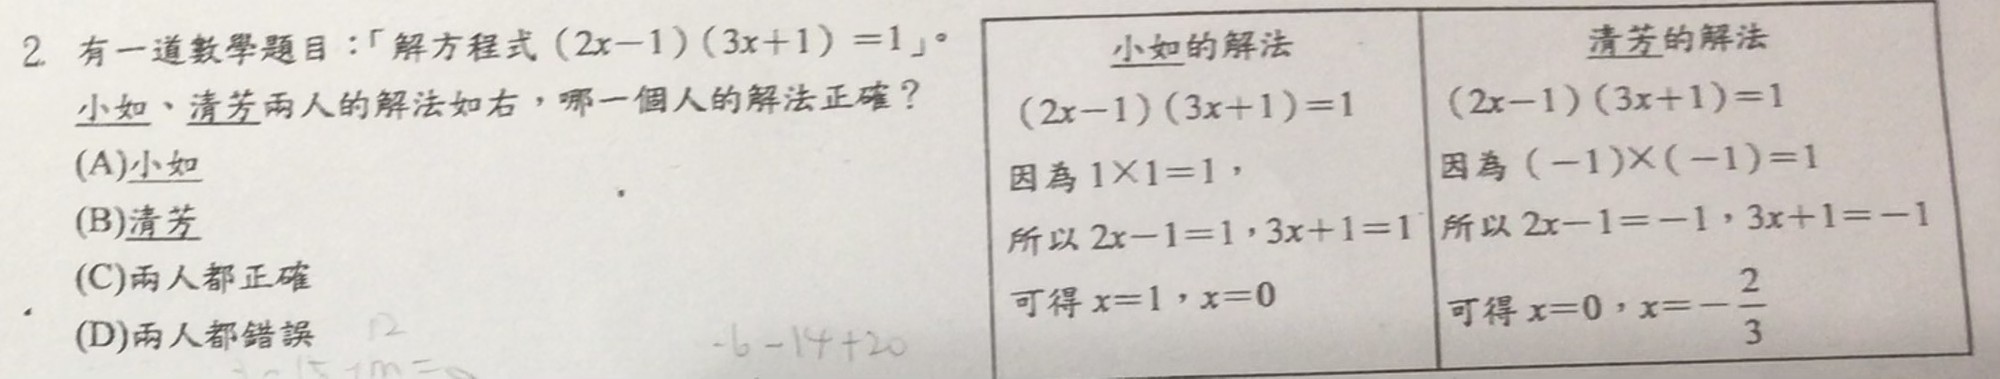 2. 有一道數學題目：「解方程式(2x－1)(3x＋1)＝1」。
小如、清芳兩人的解法如右，哪一個人的解法正確？
(A)小如
(B)清芳
(C)兩人都正確
(D)兩人都錯誤
12
-6-14+20
小如的解法
(2x－1)(3x＋1)＝1
因為1×1＝1，
所以2x－1＝1，3x＋1＝1
可得x＝1，x＝0
清芳的解法
(2x－1)(3x＋1)＝1
因為(－1)×(－1)＝1
所以2x－1＝－1，3x＋1＝－1
可得x＝0，x＝－2/3